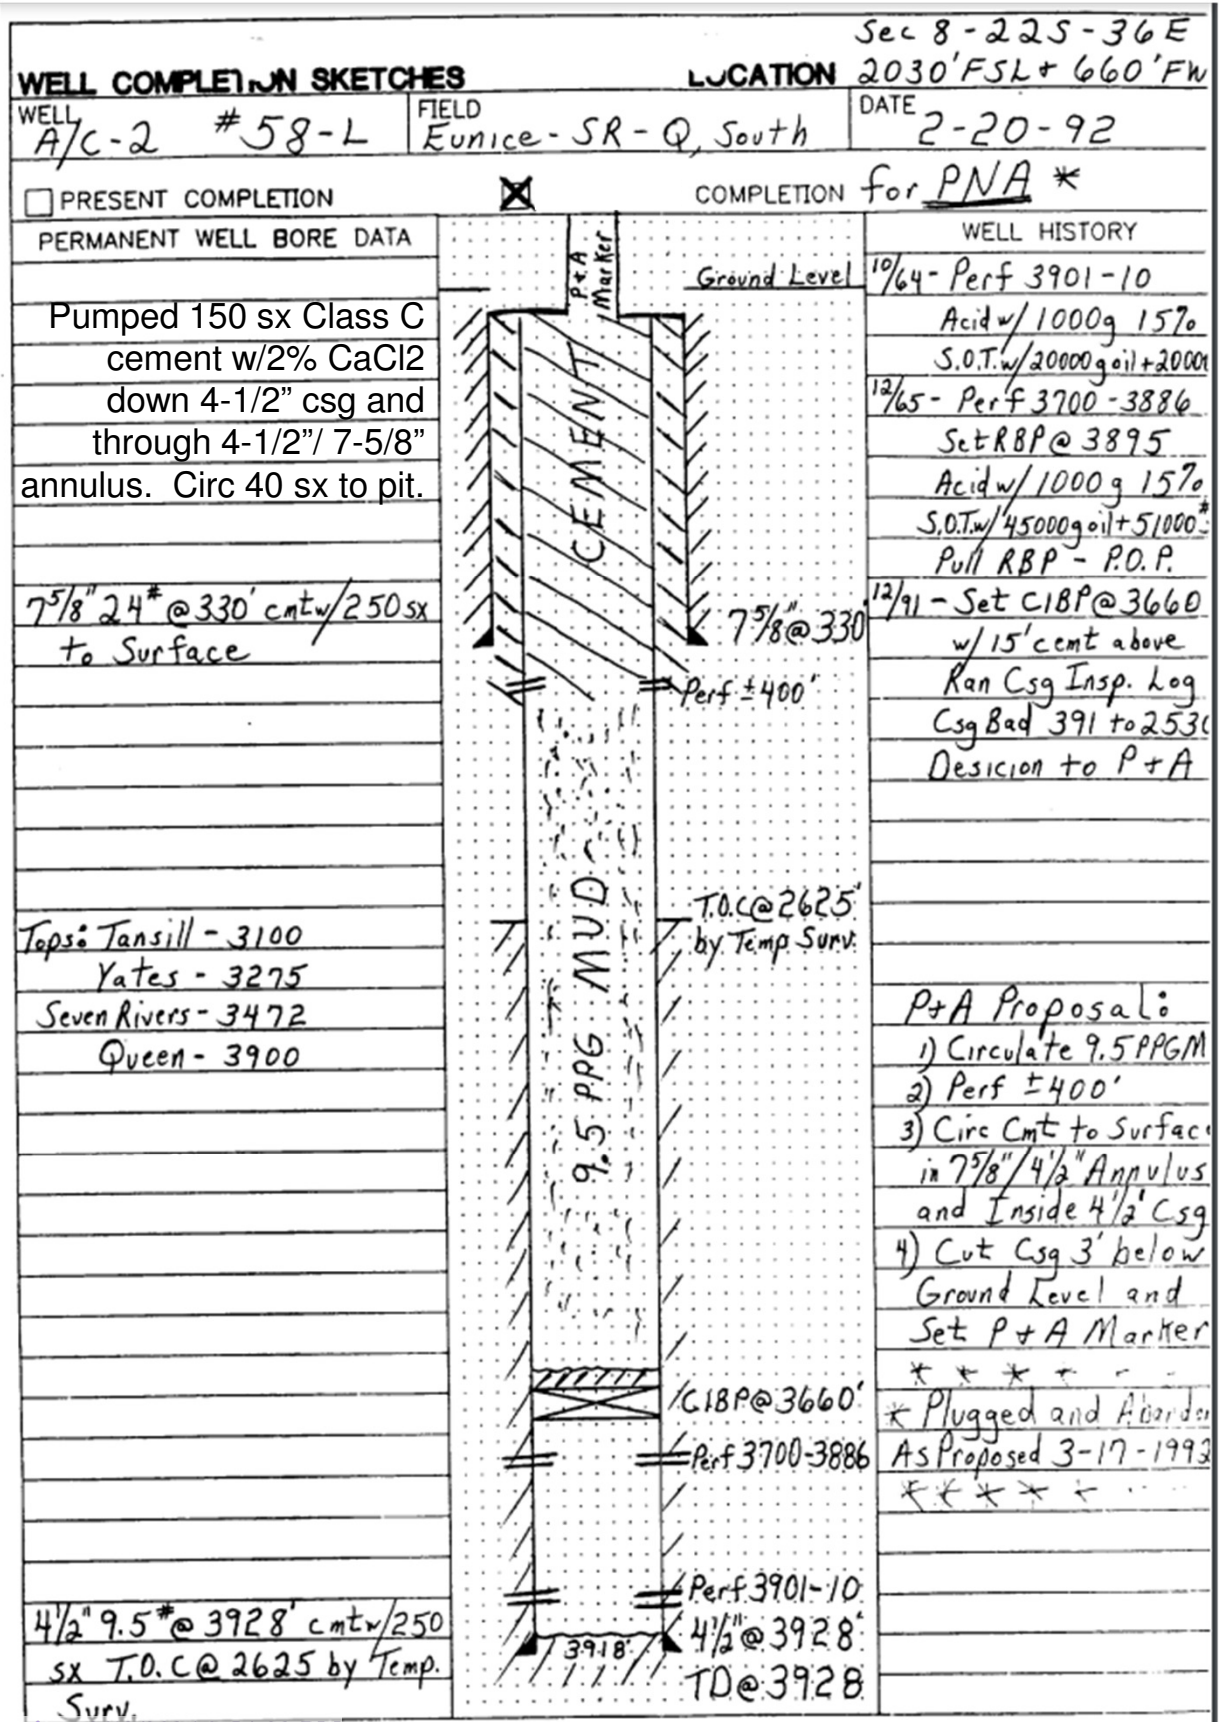 Sec 8-22S-36E
WELL COMPLETION SKETCHES LOCATION 2030'FSL + 660'FW
WELL FIELD DATE
A/C-2 #58-L Eunice-SR-Q, South 2-20-92
PRESENT COMPLETION COMPLETION for PNA *
PERMANENT WELL BORE DATA
Pumped 150 sx Class C
cement w/2% CaCl2
down 4-1/2” csg and
through 4-1/2”/ 7-5/8”
annulus. Circ 40 sx to pit.
7 5/8" 24# @ 330' cmt w/250 sx
to Surface
Tops: Tansill - 3100
Yates - 3275
Seven Rivers - 3472
Queen - 3900
4 1/2" 9.5# @ 3928' cmt w/250
sx T.O.C @ 2625 by Temp.
Surv.
P+A
Marker
Ground Level
CEMENT
7 5/8" @ 330'
Perf ±400'
9.5 PPG MUD
T.O.C @ 2625'
by Temp Surv.
CIBP @ 3660'
Perf 3700-3886
Perf 3901-10
4 1/2" @ 3928'
3918'
TD @ 3928
WELL HISTORY
10/64 - Perf 3901-10
Acid w/ 1000g 15%
S.O.T. w/ 20000g oil +
12/65 - Perf 3700-3886
Set RBP @ 3895
Acid w/ 1000g 15%
S.O.T. w/ 45000g oil + 51000#
Pull RBP - P.O.P.
12/91 - Set CIBP @ 3660
w/ 15' cemt above
Ran Csg Insp. Log
Csg Bad 391 to
Desicion to P+A
P+A Proposal:
1) Circulate 9.5 PPGM
2) Perf ±400'
3) Circ Cmt to Surfac
in 7 5/8"/4 1/2" Annulus
and Inside 4 1/2" Csg
4) Cut Csg 3' below
Ground Level and
Set P+A Marker
* * * * - -
* Plugged and
As Proposed 3-17-1992
* * * * *